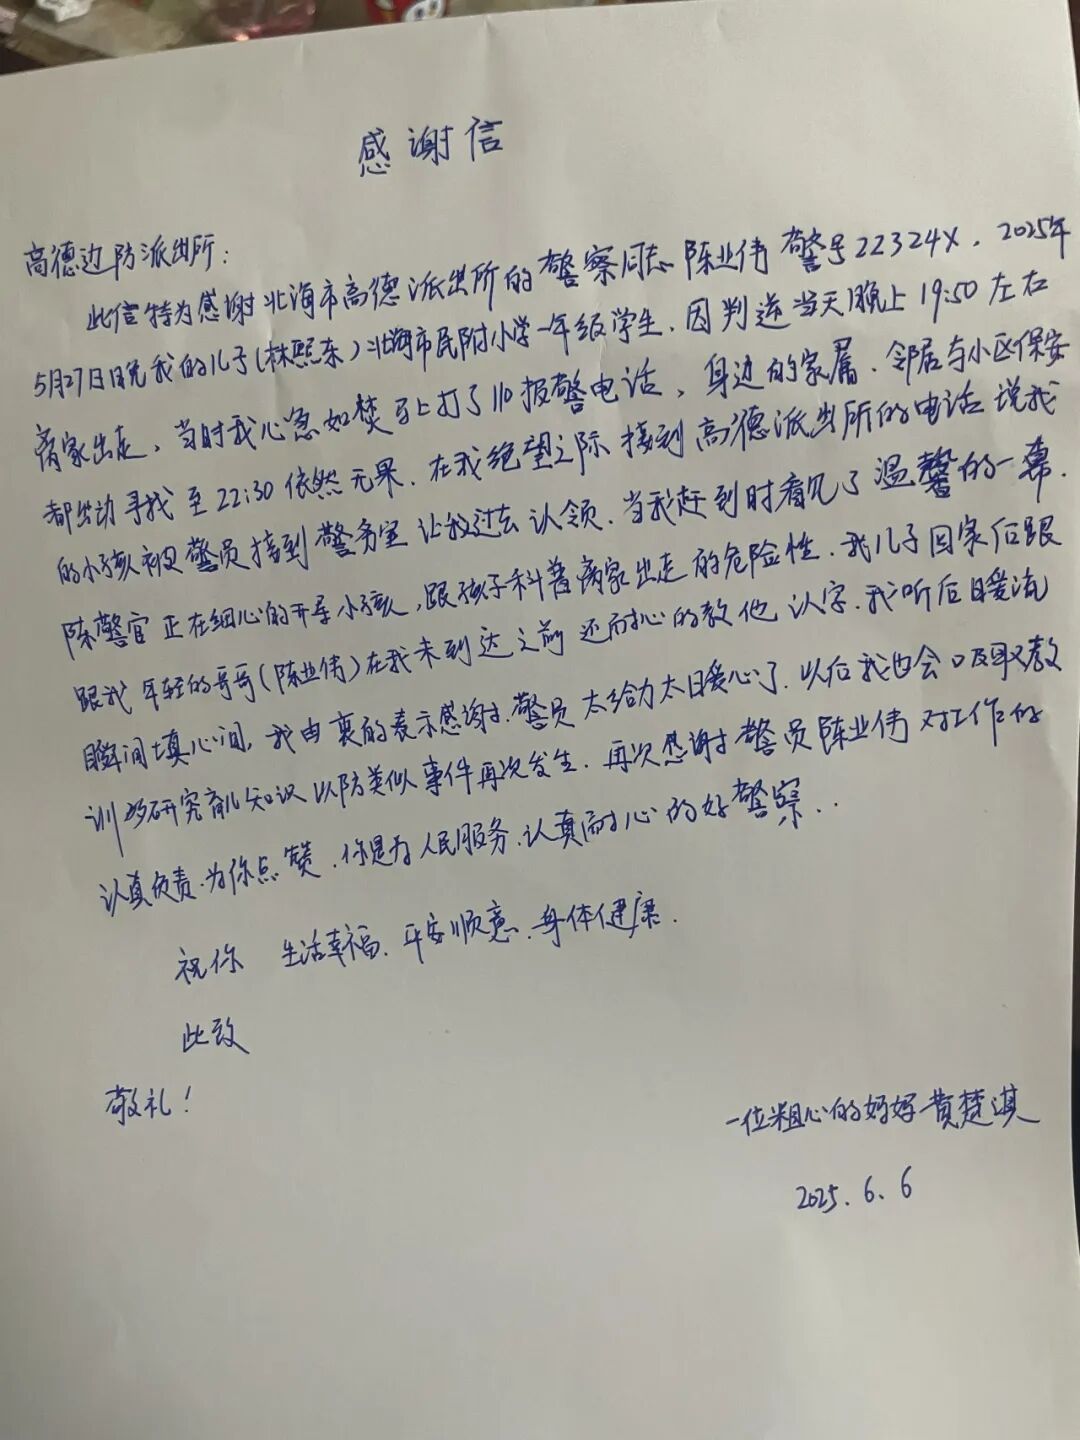 感谢信
高德边防派出所：
此信特为感谢北海市高德派出所的警察同志陈业伟警号22324X。2025年
5月27日晚我的儿子(林熙东)北海市民附小学一年级学生，因判逆当天晚上19:50左右
离家出走，当时我心急如焚马上打了110报警电话，身边的家属、邻居与小区保安
都出动寻找至22:30依然无果。在我绝望之际接到高德派出所的电话说我
的小孩被警员接到警务室让我过去认领。当我赶到时看见了温馨的一幕.
陈警官正在细心的开导小孩，跟孩子科普离家出走的危险性.我儿子回家后跟
跟我年轻的哥哥(陈业伟)在我未到达之前还耐心的教他认字.我听后暖流
瞬间填心间，我由衷的表示感谢.警员太给力太暖心了.以后我也会吸取教
训多研究育儿知识以防类似事件再次发生.再次感谢警员陈业伟对工作的
认真负责.为你点赞.你是为人民服务.认真耐心的好警察..
祝你 生活幸福、平安顺意、身体健康.
此致
敬礼！
一位粗心的妈妈黄楚淇
2025.6.6